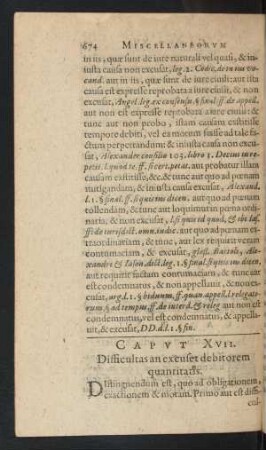 674 MISCELLANEORVM
in iis, quæ sunt de iure naturali vel quasi, & in-
iusta causa non excusat, leg. 2. Codic. de in ius vo-
cand. aut in iis, quæ sunt de iure ciuili: aut ista
causa est expresse reprobata à iure ciuili, & non
excusat, Angel. leg. ex consensu. § final. ff. de appell.
aut non est expresse reprobata à iure ciuili: &
tunc aut non proba, istam causam extitisse
tempore debiti, vel ea morum fuisse ad tale fa-
ctum perpetrandum; & iniusta causa non excu-
sat, Alexander consilio 103. libro 3. Decius in re-
pet. l. quod te. ff. si cert. petat. aut probatur illam
causam extitisse, &c. & tunc aut quo ad pœnam
mitigandam, & iniusta causa excusat, Alexand.
l. 1. § final. ff. si quis ius dicen. aut quo ad pœnam
tollendam, & tunc aut loquimur in pœna ordi-
naria, & non excusat, l. si quis id quod, & ibi Ias.
ff. de iurisdict. omn. iudic. aut quo ad pœnam ex-
traordinariam, & tunc, aut lex requirit veram
contumaciam, & excusat, gloss. Bartoli, Ale-
xandri & Iason. dict. leg. 1. § final. si quis ius dicen.
aut non requirit veram contumaciam, & tunc
aut est condemnatus, & non appellauit, & non ex-
cusat, arg. l. 1. § biduum, ff. quan. appell. l. relegato-
rum § ad tempus, ff. de interd. & releg. aut non est
condemnatus, vel est condemnatus, & appella-
uit, & excusat, DD. d. l. 1. § fin.
CAPVT XVII.
Difficultas an excuset debitorem
quantitatis.
DIstinguendum est, quo ad obligationem,
exactionem & moram. Primo aut est diffi-
cul-